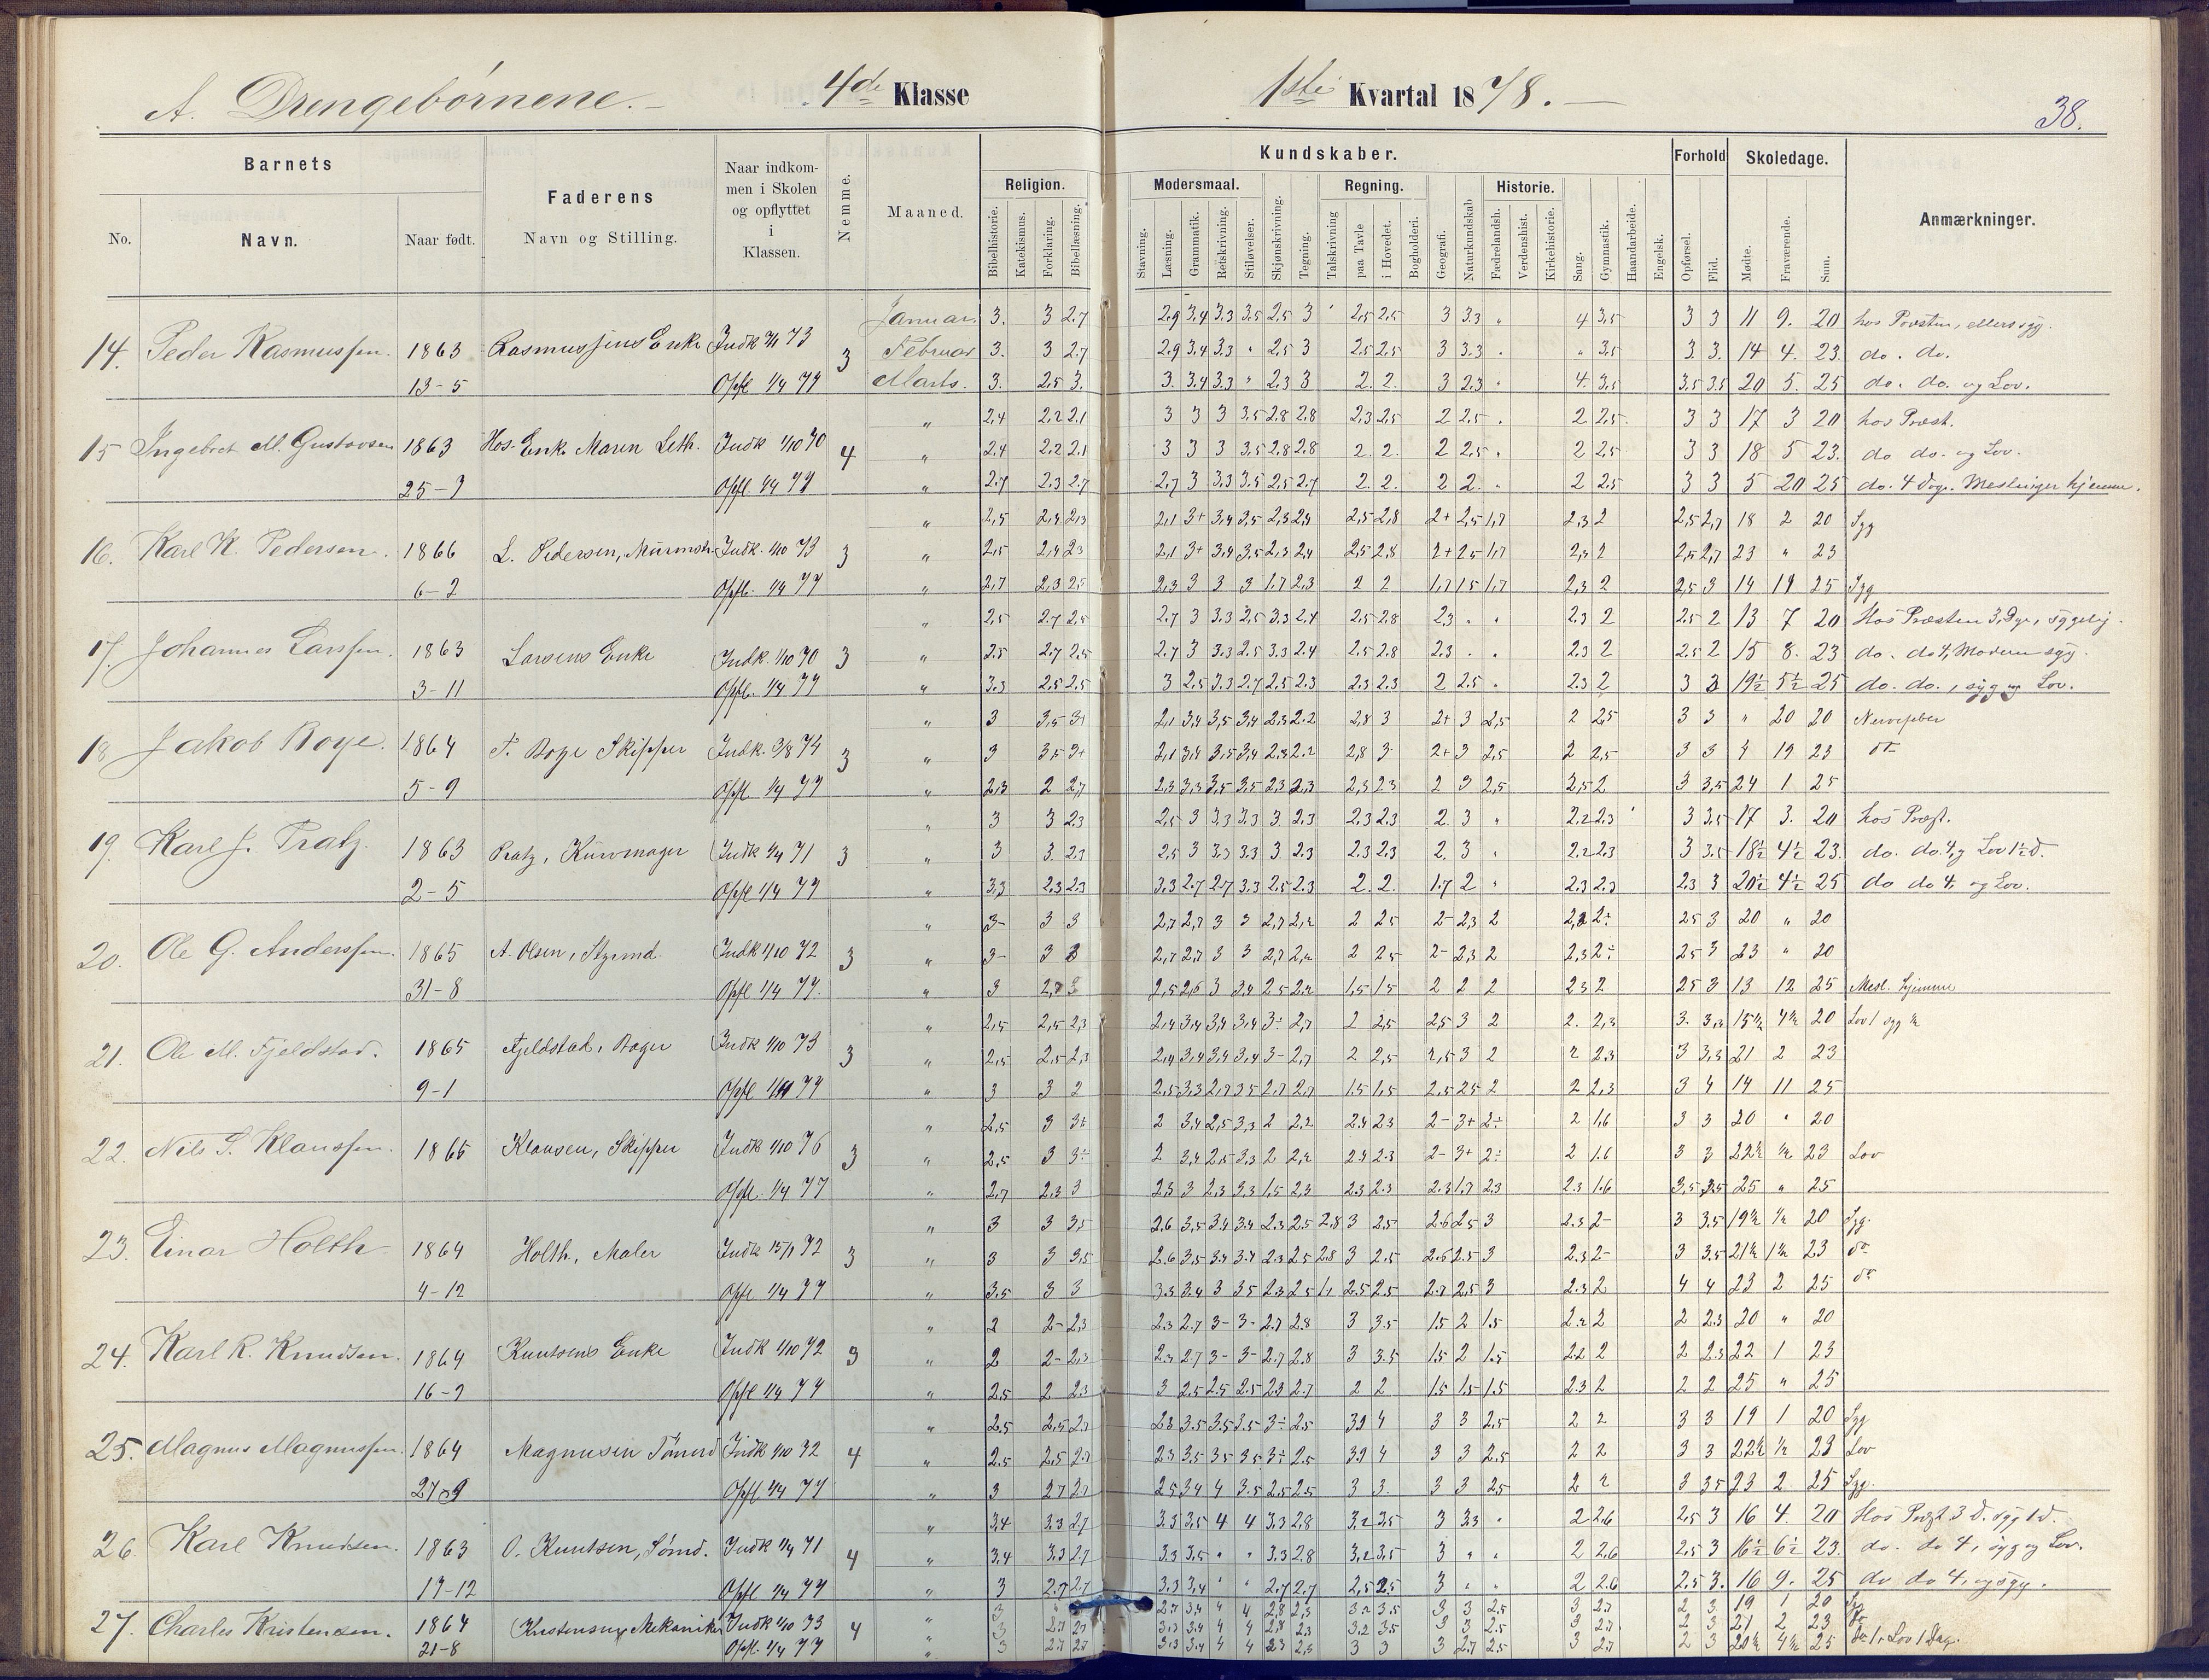 A. Drengebørnene. 4de Klasse 1ste Kvartal 1878. 38.
Barnets Faderens Naar indkommen i Skolen og opflyttet i Klassen. Nemme. Maaned. Kundskaber. Forhold Skoledage. Anmærkninger.
Religion. Modersmaal. Regning. Historie.
No. Navn. Naar født. Navn og Stilling.
Bibelhistorie. Katekismus. Forklaring. Bibellæsning. Stavning. Læsning. Grammatik. Retskrivning. Stiløvelser. Skjønskrivning. Tegning. Talskrivning paa Tavle i Hovedet. Bogholderi. Geografi. Naturkundskab Fædrelandsh. Verdenshist. Kirkehistorie. Sang. Gymnastik. Haandarbeide. Engelsk. Opførsel. Flid. Mødte. Fraværende. Sum.
Januar. 3. 3 2.7 2.9 3.4 3.3 3.5 2.5 3 2.5 2.5 3 3.3 " 4 3.5 3 3 11 9. 20 hos Presten, ellers syg.
14. Peder Rasmussen. 1863 Rasmussens Enke Indk 73 3 Februar 3. 3 2.7 2.9 3.4 3.3 " 2.5 3 2.5 2.5 3 3.3 " " 3.5 3. 3. 14 4. 23. do. do.
13-5 Opfl. 1/4 77 Marts. 3. 2.5 3. 3. 3.4 3.3 " 2.3 3 2. 2. 3 2.3 " 4. 3.5 3.5 3.5 20 5. 25 do. do. og Lov.
" 2.4 2.2 2.1 3 3 3 3.5 2.8 2.8 2.3 2.5 2 2.5 " 2 2.5 3 3 17 3 20 hos Præst.
15 Ingebret M. Gustavsen 1863 Hos. Enk. Maren Leth. Indk 1/10 70 4 " 2.4 2.2 2.1 3 3 3 3.5 2.8 2.8 2. 2. 2 2.5 " 2 2.5 3 3 18 5 23. do do. og Lov.
25-9 Opfl. 1/4 77 " 2.7 2.3 2.7 2.7 3 3.3 3.5 2.5 2.7 2. 2. 2 2. " 2 2.5 3 3 5 20 25 do. 4 Dage. Meslinger hjemme.
" 2,5 2,4 2,3 2,1 3+ 3,4 3,5 2,3 2,4 2,5 2,8 2+ 2,5 1,7 2,3 2 2,5 2,7 18 2 20 Syg
16. Karl K. Pedersen. 1866 L. Pedersen, Murmstr. Indk. 1/10 73 3 " 2,5 2,4 2,3 2,1 3+ 3,4 3,5 2,3 2,4 2,5 2,8 2+ 2,5 1,7 2,3 2 2,5 2,7 23 " 23
6-2 Opfl. 1/4 77 " 2,7 2,3 2,5 2,3 3 3 3 1,7 2,3 2 2 1,7 1,5 1,7 2,3 2 2,5 3 14 11 25 Syg
" 2,5 2.7 2,5 2.7 3 3.3 2.5 3.3 2.4 2.5 2.8 2.3 " " 2.3 2 2.5 2 13 7 20 Hos Præsten 3 Dge, sygelig.
17. Johannes Larssen. 1863 Larsens Enke Indk. 1/10 70 3 " 2.5 2.7 2.5 2.7 3 3.3 2.5 3.3 2.4 2.5 2.8 2.3 " " 2.3 2 2.5 2 15 8. 23 do. do 4, Moderen syg.
3-11 Opfl. 1/4 77 " 3.3 2.5 2.5 3 2.5 3.3 2.7 2.5 2.3 2.3 2.3 2 2.5 " 2.3 2 3 3 19½ 5½ 25 do. do., syg og Lov.
" 3 3,5 3+ 2,1 3,4 3,5 3,4 2,3 2.2 2,8 3 2+ 3 2,5 2 2,5 3 3 " 20 20 Nervefeber
18 Jakob Boye. 1864 F. Boye Skipper Indk. 3/8 74 3 " 3 3,5 3+ 2,1 3,4 3,5 3,4 2,3 2.2 2,8 3 2+ 3 2,5 2 2,5 3 3 4 19 23 do
5-9 Opfl 1/4 77 " 2,3 2 2,7 2,3 3,3 3,5 3,5 2,3 2,3 2,3 2,3 2 3 2,5 2,5 2 3 3,5 24 1 25
" 3 3 2.3 2,5 3 3,3 3.3 3. 2.3 2.3 2.3 2. 3 " 2.2 2.3 3 3.5 17 3. 20 hos Præst.
19. Karl J. Pratz. 1863 Pratz, Kurvmager Indk 1/4 71 3 " 3 3. 2.3 2.5 3 3.3 3.3 3. 2.3 2.3 2.3 2. 3 " 2.2 2.3 3 3.5 18½ 4½ 23. do. do. 4, og Lov 1½ d.
2-5 Opfl 1/4 77 " 3.3 2.3 2.3 3.3 2.7 2.7 3.3 2.5 2.3 2. 2. 1.7 2 " 2.3 2.3 2.3 3 20½ 4½ 25 do do 4, og Lov.
" 3- 3 3 2,7 2,7 3 3 2,7 2,2 2 2.5 2- 2,3 2 2,2 2÷ 2.5 3 20 " 20
20. Ole G. Anderssen. 1865 A. Olsen, Styrmd. Indk 1/10 72 3 " 3- 3 3 2,7 2,7 3 3 2,7 2,2 2 2.5 2- 2,3 2 2,3 2÷ 2.5 3 23 " 20
31-8 Opfl 1/4 77. " 3 2,7 3 2,5 2,6 3 3.4 2.5 2.2 1.5 1.5 2 2 2 2.3 2 2.5 3 13 12 25 Mesl. hjemme
" 2,5 2,5 2,3 2,4 3,4 3,4 3,4 3÷ 2,7 2 2,5 2,5 3 2 2. 2,3 3. 3,3 15½ 4½ 20 Lov 1 syg ½
21. Ole M. Fjeldstad. 1865 Fjeldstad, Bager Indk 1/10 73 3 " 2,5 2,5 2,3 2,4 3,4 3,4 3,4 3- 2,7 2 2,5 2,5 3 2 2 2.3 3 3,3 21 2 23
9-1 Opfl 77 " 3 3 2 2.5 3.3 2.7 3.5 2.7 2.7 1.5 1.5 2.5 2.5 2 2 2,3 3 4 14 11 25
" 2,5 3 3÷ 2 3,4 2,5 3,3 2 2.2 2.4 2.3 2- 3+ 2÷ 2 1,6 3 3 20 " 20
22. Nils S. Klaussen. 1865 Klausen, Skipper Indk 1/10 76 3 " 2,5 3 3÷ 2 3,4 2,5 3,3 2 2,2 2.4 2.3 2- 3+ 2÷ 2 1.6 3 3 22½ ½ 23 Lov
Opfl. 1/4 77 " 2,7 2.3 3 2.3 3 2.3 3.3 1.5 2.3 2.3 2.3 2.3 1.7 2.3 2.3 1.6 3,5 3.5 25 " 25
" 3 3 3,5 2.6 3,5 3.4 3.4 2.3 2.5 2.8 3 2.5 2.6 2.5 3 2.3 2- 3 3.5 19½ ½ 20 Syg.
23. Einar Holth 1864 Holth, Maler Indk 15/1 72 3 " 3 3 3,5 2.6 3.5 3.4 3.4 2.3 2.5 2.8 3 2.5 2.6 2.5 3 2.3 2- 3 3.5 21½ 1½ 23 do
4-12 Opfl 1/4 77 " 3.5 3 3 3.3 3.4 3 3.5 2.3 2.5 2.5 2.5 2.7 2.5 3 2.3 2 4 4 23 2 25 do
" 2 2- 2.3 2.3 2.7 3- 3- 2.7 2.8 3 3.5 1.5 2 1.5 2.2 2 2 2.3 20 " 20
24. Karl R. Knudsen. 1864 Knutsens Enke Indk 1/10 72 3 " 2 2- 2.3 2.3 2.7 3- 3- 2.7 2.8 3 3.5 1.5 2 1.5 2.2 2 2 2.3 22 1 23
16-9 Opfl 1/4 77 " 2.5 2 2.3 3 2.5 2.5 2.5 2.3 2.7 2 2 1.5 1.5 1.5 2.3 2 2 2 25 " 25
" 2.5 2,5 2.7 2.3 3.5 3.5 3.5 3÷ 2.5 3.4 4 3 3 2.5 2 2 3 3 19 1 20 Syg
25. Magnus Magnussen. 1864 Magnusen Tømmd Indk 1/10 72 4 " 2.5 2.5 2.7 2.3 3.5 3.5 3.5 3÷ 2.5 3.4 4 3 3 2.5 2 2 3 3 22½ ½ 23 Lov
27-9 Opfl 1/4 77 " 3 2.7 2.7 2.5 3.4 4 3.5 2.5 2.5 3 3. 3 3 2.5 2 2 3 3.5 23 2 25 Syg.
" 3,4 3.3 2.7 3.3 3.5 4 4 3.3 2.8 3.2 3.5 3 3.3 " 2 2.6 2.5 3 16 4. 20 Hos Præst 3 D. syg 1 d.
26. Karl Knudsen. 1863 O. Knutsen, Sømd. Indk 1/4 71 4 " 3.4 3.3 2.7 3.3 3.5 " " 3.3 2.8 3,2 3.5 3 " " 2 2.6 2.5 3 16½ 6½ 23. do. do 4, syg og Lov.
17-12 Opfl 1/4 77 " 3 2.7 2.7 3.3 3,4 " " 2.7 2.7 2,5 2.5 3 " " 2 2.6 2.5 3. 16 9. 25 do do 4, og syg.
" 3 2.7 3.4 4 4 2,8 2,3 3.2 3.5 3 3 2.5 3 2.7 2 3. 19 1 20 Syg
27. Charles Kristensen. 1864 Kristensen, Mekaniker Indk 1/10 73 4 " 3 2.7 2.7 3.3 3.4 4 4 2,8 2.3 3.2 3.5 3 3 2.5 3 2.7 2 3 21 2 23 do
21-8 Opfl. 1/4 77 " 3 2.7 2.7 3.3 3.4 4 4 2.3 2,5 3 3 3 2.7 2.5 3 2.7 2 3 20½ 4½ 25 do 1, Lov 1 Dag.